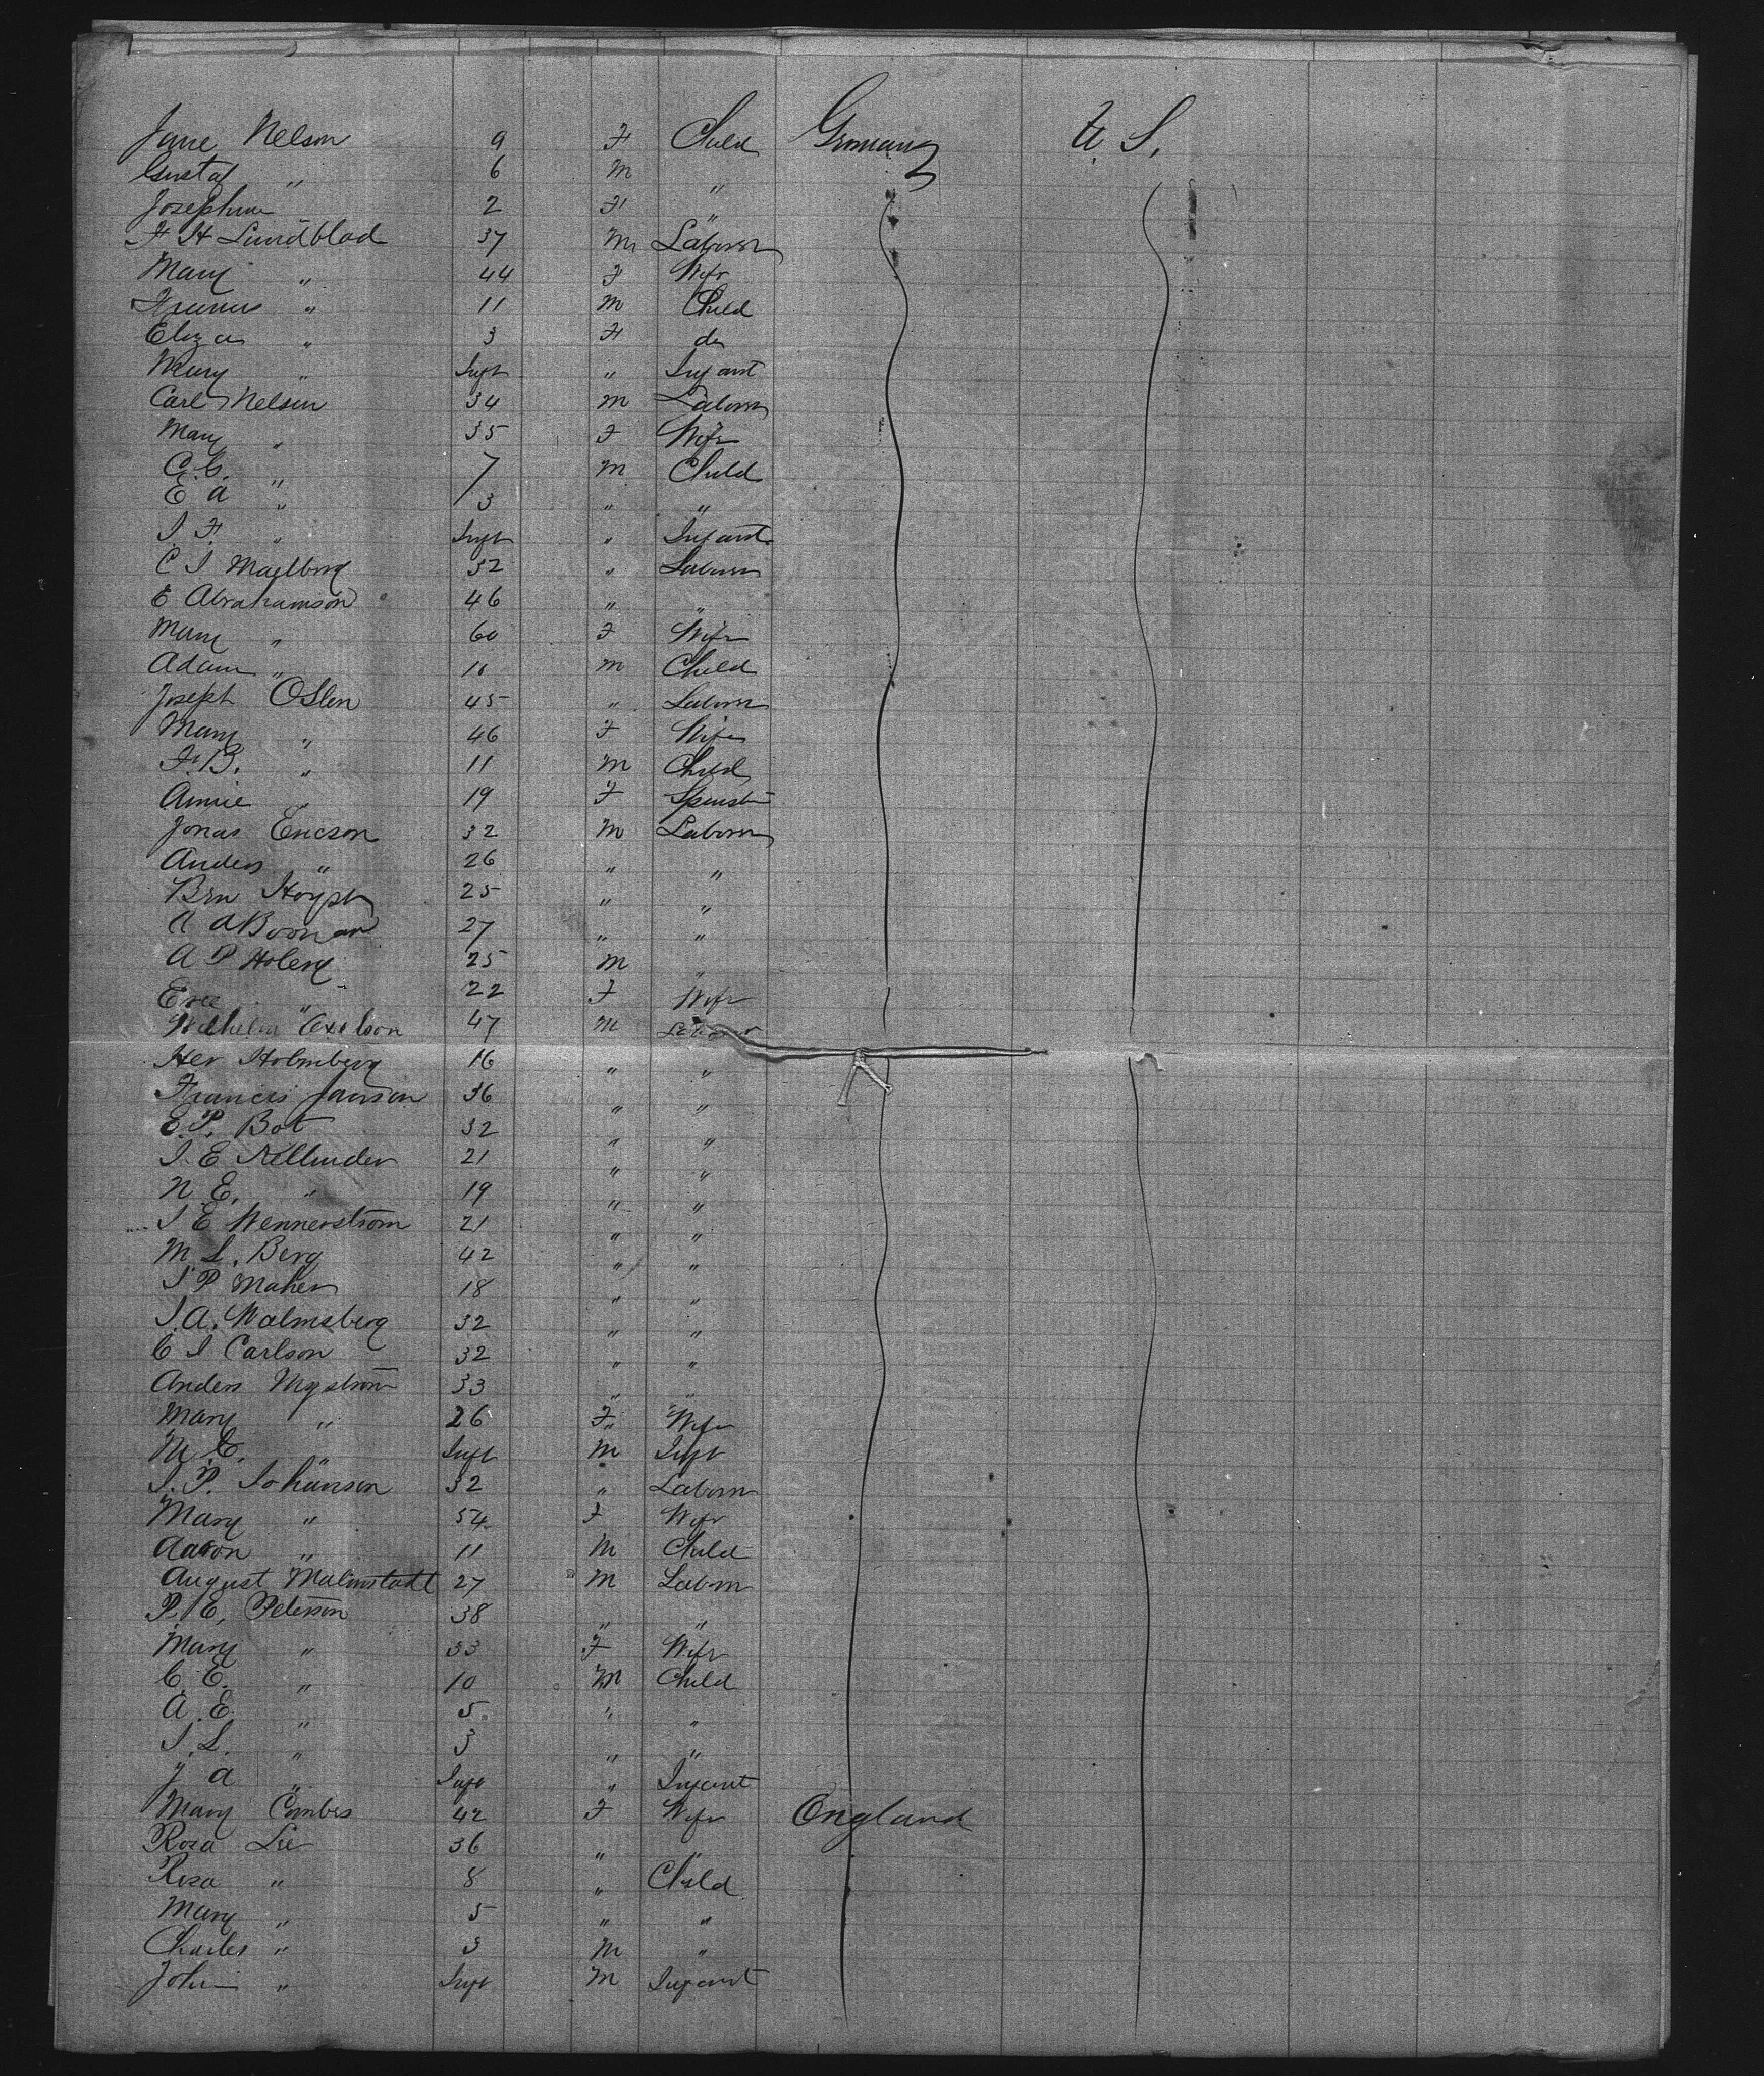 Jane Nelson 9 F Child Germany U. S.
Gustaf " 6 M "
Josephine 2 F "
F H Lundblad 37 M Laborer
Mary " 44 F Wife
Francis " 11 M Child
Eliza " 3 F do
Mary " Inft " Infant
Carl Nelson 34 M Laborer
Mary " 35 F Wife
C. G. " 7 M Child
E A " 3 " "
I. F. " Inft " Infant
C I 32 " Laborer
E Abrahamson 46 " "
Mary " 60 F Wife
Adam " 10 M Child
Joseph Oslen 45 " Laborer
Mary " 46 F Wife
F. B. " 11 M Child
Annie " 19 F Spinster
Jonas Ericson 32 M Laborer
Anders " 26 " "
25 " "
27 " "
A P Holberg 25 M "
Eva " 22 F Wife
Wilhelm Axelson 47 M Laborer
Her Holmberg 16 " "
Francis Janson 36 " "
E. P. Bot 32 " "
I. E 21 " "
N E. " 19 " "
I E Wennerstrom 21 " "
M. L. Berg 42 " "
I P Maher 18 " "
I. A. Walmsberg 32 " "
C I Carlson 32 " "
Anders Nystrom 33 " "
Mary " 26 F Wife
M. C. " Inft M Inft
I. P. Johanson 32 " Laborer
Mary " 54 F Wife
Aaron " 11 M Child
August Malmstadt 27 M Laborer
P. E. Peterson 38 " "
Mary " 33 F Wife
C. E. " 10 M Child
A. E. " 5 " "
I. L. " 3 " "
J A " Inft " Infant
Mary Combes 42 F Wife England
Rosa Lee 36 " "
Rosa " 8 " Child
Mary " 5 " "
Charles " 3 M "
John " Inft M Infant